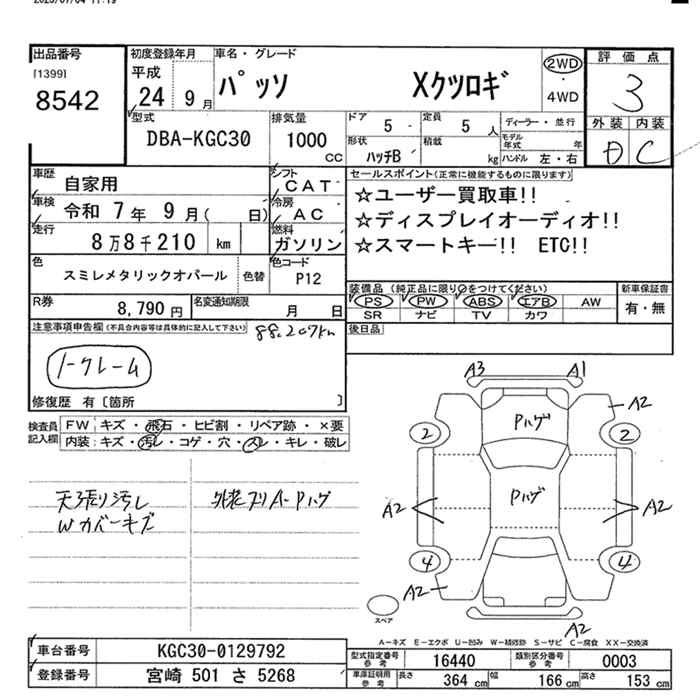 出品番号
[1399]
8542
初度登録年月
平成
24 9月
車名・グレード
パッソ Xクツロギ
2WD
・
4WD
評価点
3
外装 内装
D C
型式
DBA-KGC30
排気量
1000
CC
ドア 5
定員 5人
形状 ハッチB
積載 kg
ディーラー・並行
モデル年式 年
ハンドル 左・右
車歴 自家用
シフト CAT
車検 令和 7年 9月( 日)
冷房 AC
走行 8万8千210 km
燃料 ガソリン
色 スミレメタリックオパール 色替
色コード P12
R券 8,790円
名変通知期限 月 日
セールスポイント(正常に機能するものに限ります)
☆ユーザー買取車!!
☆ディスプレイオーディオ!!
☆スマートキー!! ETC!!
装備品(純正品に限り○をつけてください)
PS PW ABS エアB AW
SR ナビ TV カワ
新車保証書
有・無
後日品
注意事項申告欄(不具合内容等は具体的に記入して下さい)
88,207km
ノークレーム
修復歴 有〔箇所 〕
検査員記入欄
FW キズ・飛石・ヒビ割・リペア跡・×要
内装: キズ・汚レ・コゲ・穴・スレ・キレ・破レ
天張り汚レ
Wカバーキズ
外装フリA-Pハゲ
A3 A1
A2
Pハゲ
2 2
Pハゲ
A2 A2
4 4
A2
スペア
A2
A-キズ E-エクボ U-凹み W-補修跡 S-サビ C-腐食 XX-交換済
車台番号 KGC30-0129792
登録番号 宮崎 501 さ 5268
型式指定番号
参考
16440
類別区分番号
参考
0003
車庫証明用
参考
長さ 364 cm
幅 166 cm
高さ 153 cm